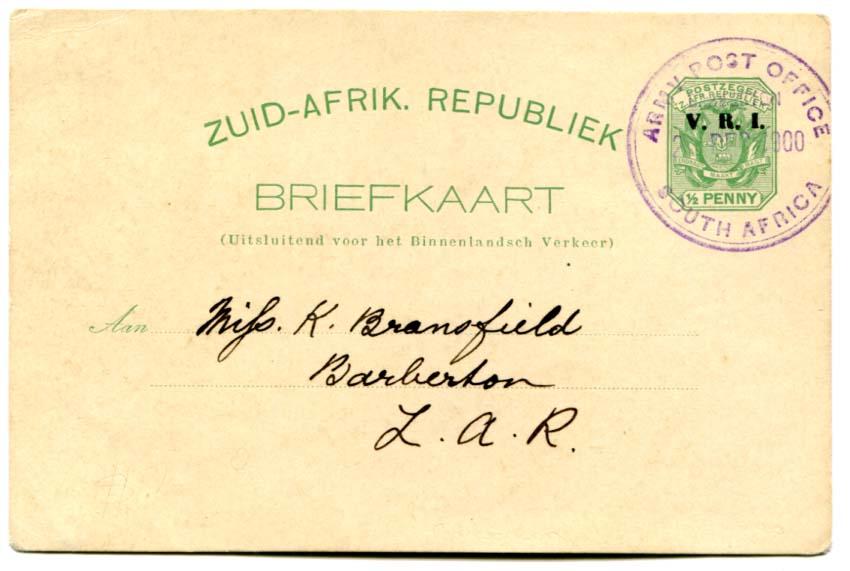 ZUID-AFRIK. REPUBLIEK
BRIEFKAART
(Uitsluitend voor het Binnenlandsch Verkeer)
POSTZEGEL
Z. AFR. REPUBLIEK
V. R. I.
½ PENNY
ARMY POST OFFICE
1900
SOUTH AFRICA
Aan Miss. K. Bransfield
Barberton
Z. A. R.